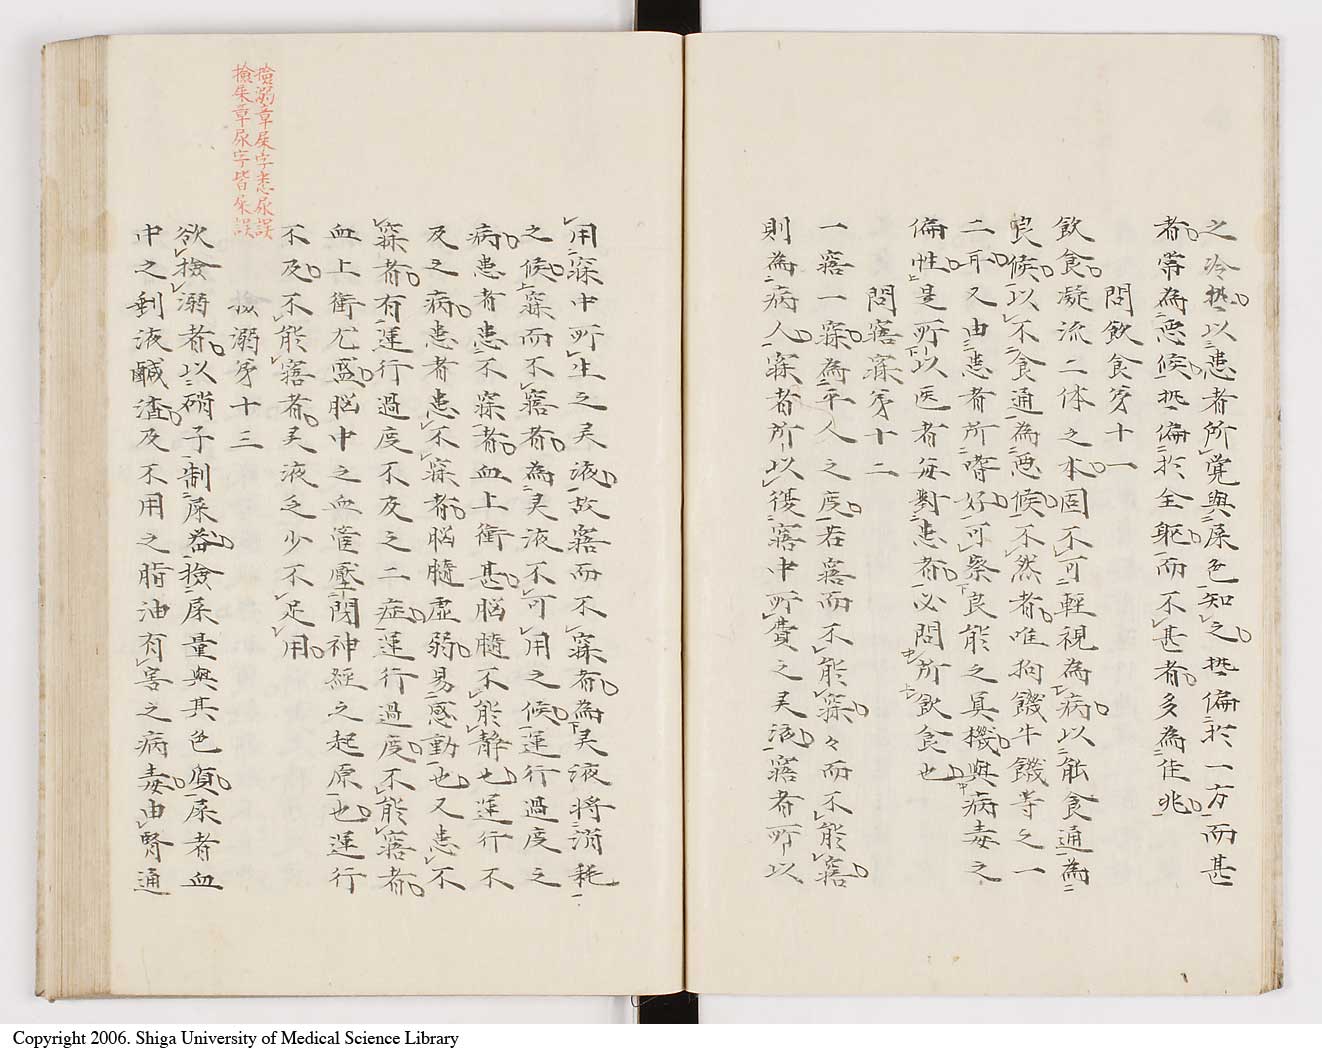 之冷熱以患者所覚與屎色知之熱偏於一方而甚
者常為悪候熱偏於全躯而不甚者多為佳兆
問飲食第十一
飲食凝流二体之本固不可軽視為病以能食通為
良候以不食通為悪候不然者唯拘饑牛饑等之一
二耳又由患者所嗜好可察良能之真機與病毒之
偏性是所以医者毎對患者必問所飲食也
問寤寐第十二
一寤一寐為平人之度若寤而不能寐々而不能寤
則為病人寐者所以復寤中所費之灵液寤者所以
用寐中所生之灵液故寤而不寐者為灵液将消耗
之候寐而不寤者為灵液不可用之候運行過度之
病患者患不寐者血上衝甚脳髄不能静也運行不
及之病患者患不寐者脳髄虚弱易感動也又患不
寐者有運行過度不及之二症運行過度不能寤者
血上衝尤盛脳中之血管壓閉神経之起原也運行
不及不能寤者灵液乏少不足用
撿溺第十三
欲撿溺者以硝子制屎器撿屎量與其色質屎者血
中之剰液鹹渣及不用之脂油有害之病毒由腎通
撿溺章屎字悉尿誤
撿屎章尿字皆屎誤
Copyright 2006. Shiga University of Medical Science Library